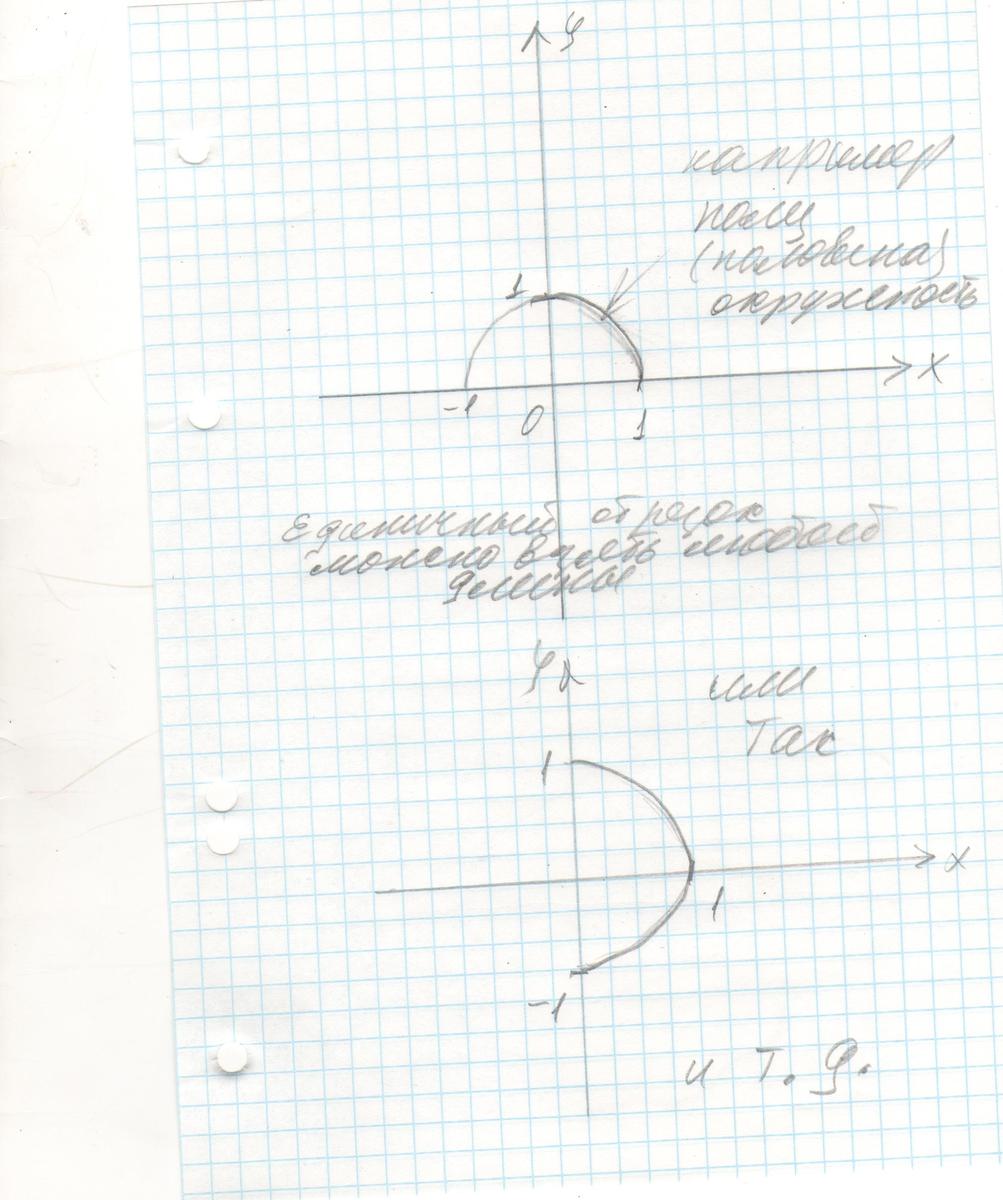 y
например
полу
(половина)
окружность
1
x
-1
0
1
Единичный отрезок
можно взять любой
длины
y
или
Так
1
x
1
-1
и т. д.